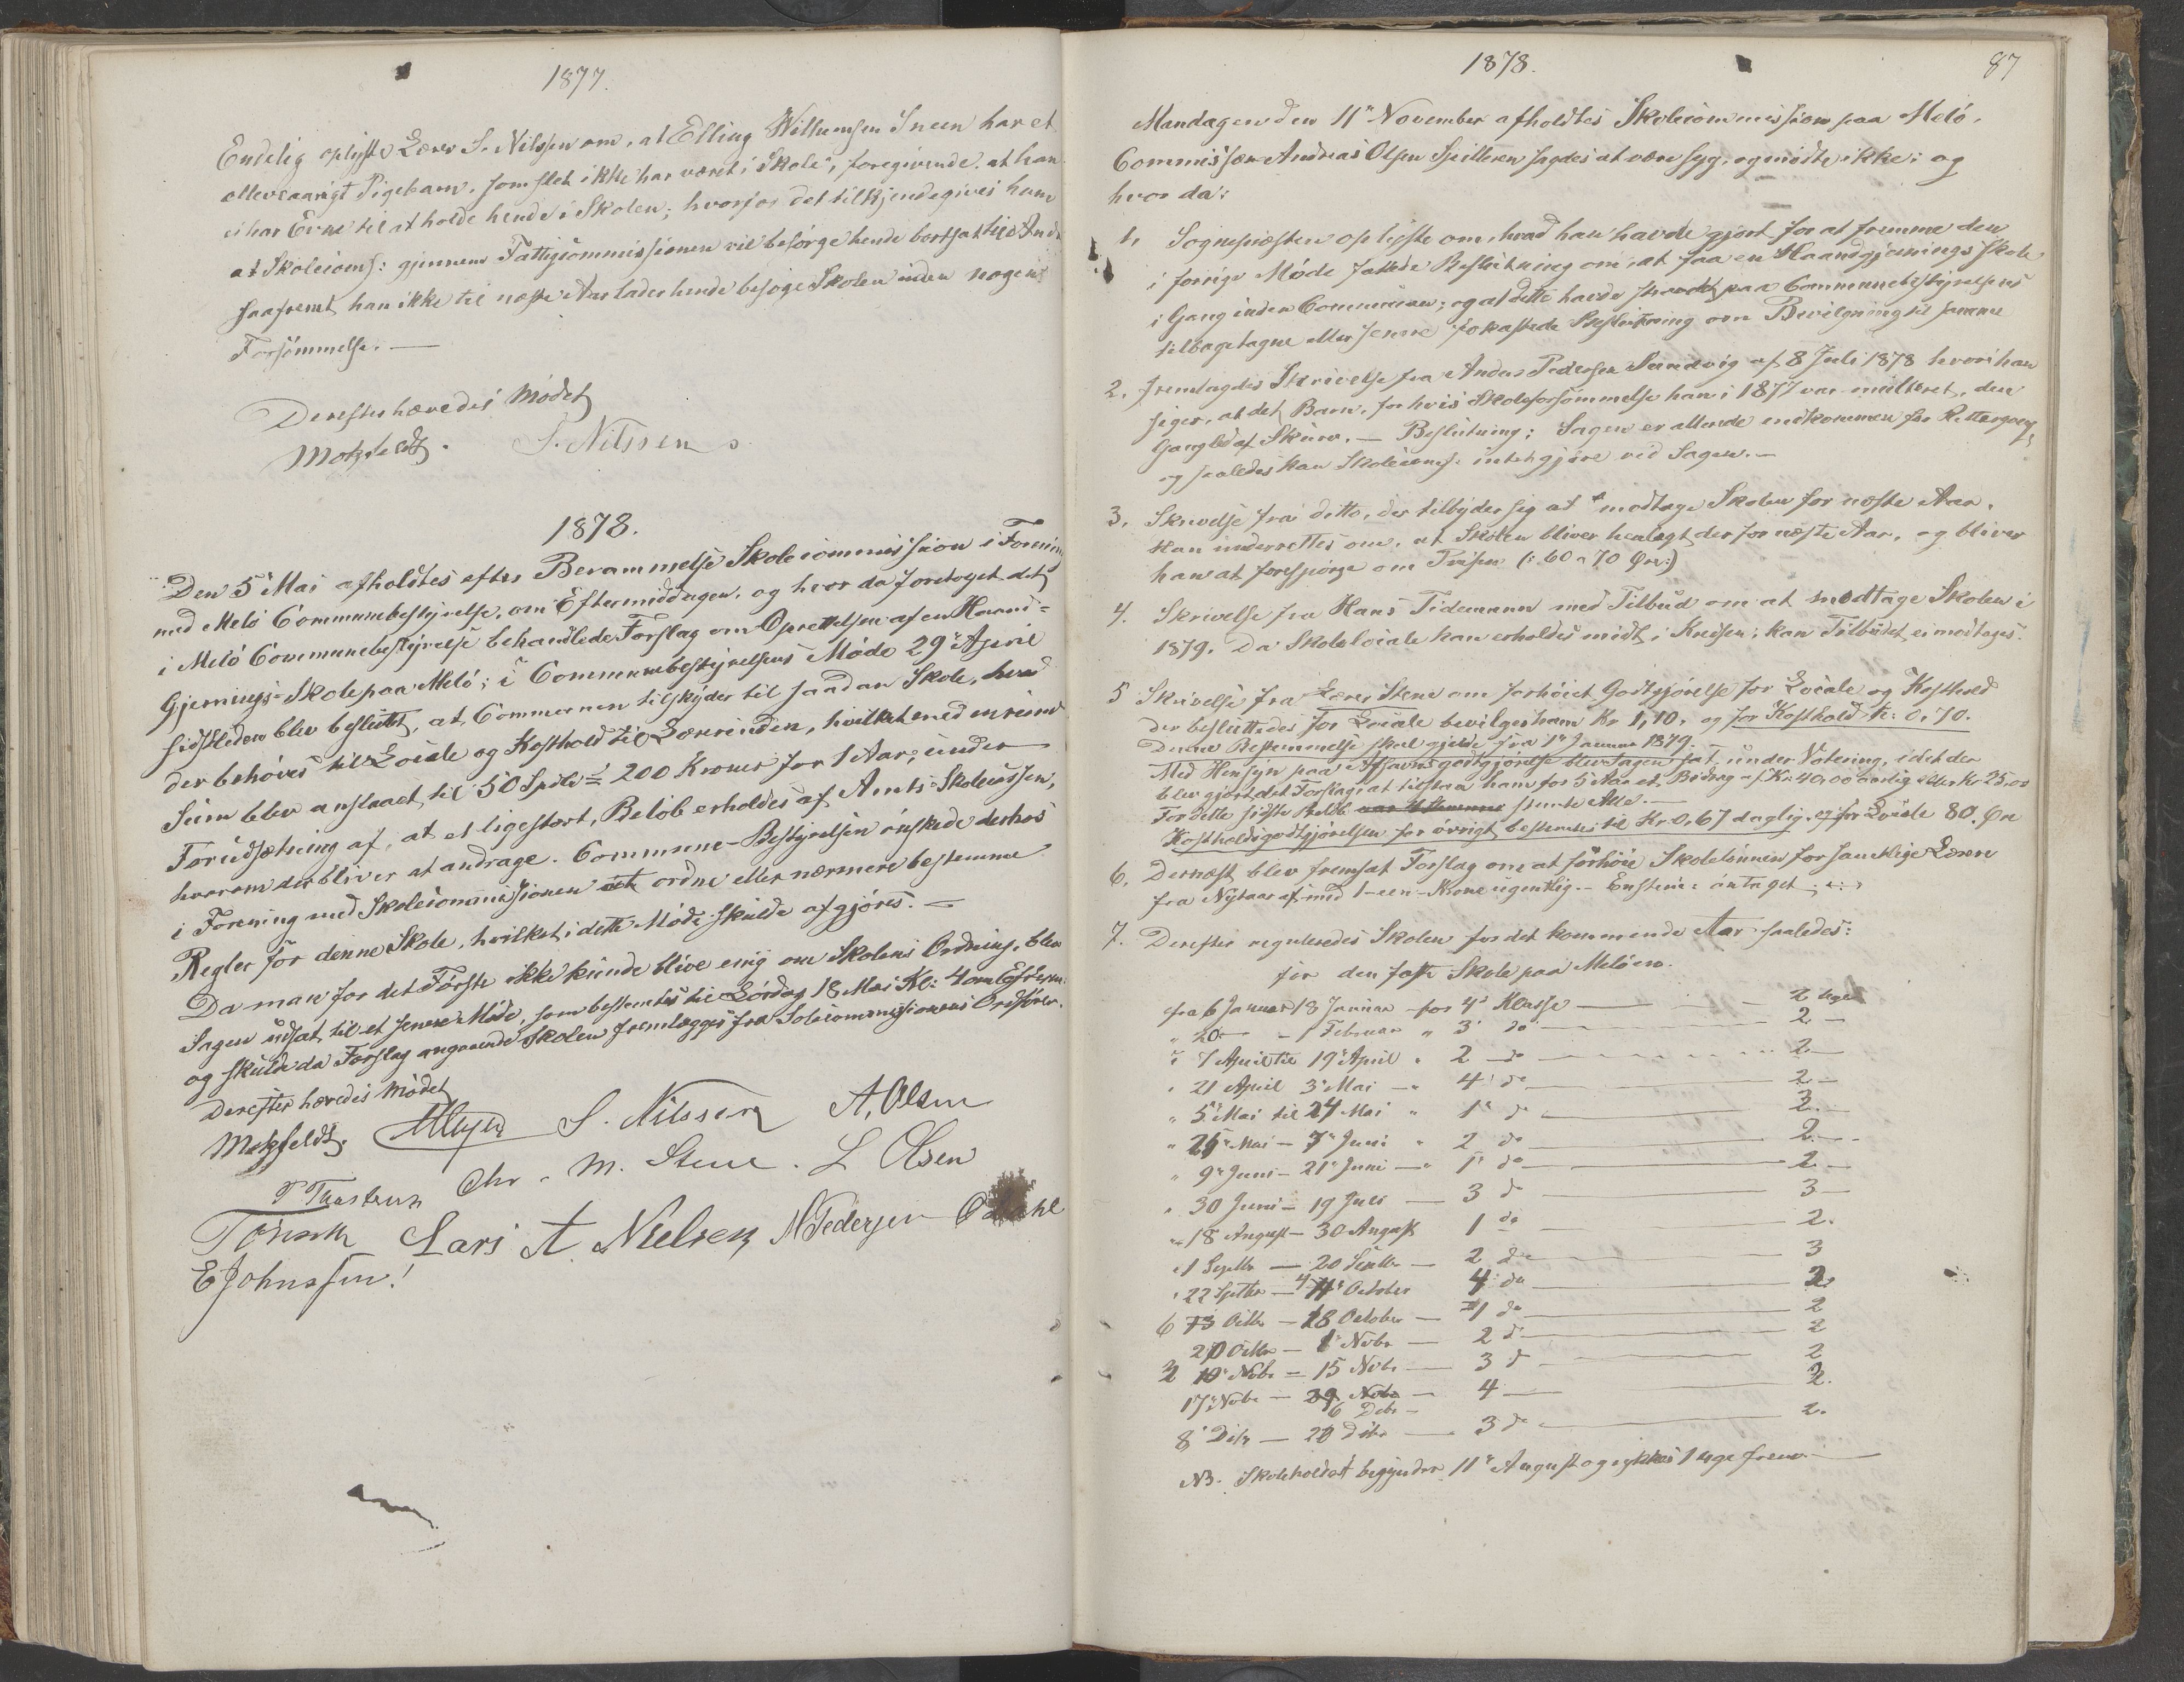 1877.
Endelig oplyste Lærer S. Nilssen om, at Elling Willumsen Sneen har et
elleveaarigt Pigebarn, som slet ikke har været i Skole, foregivende at han
ei har Evne til at holde hende i Skolen; hvorfor det tilkjendegives ham
at Skolecoms: gjennem Fattigcommissionen vil besørge hende bortsat til
saafremt han ikke til næste Aar lader hende besøge Skolen uden nogen
Forsømmelse. —
Derefter hævedes Mødet
Motzfeldt. S. Nilssen
1878.
Den 5 Mai afholdtes efter Berammelse Skolecommission i Forening
med Melø Communebestyrelse, om Eftermiddagen, og hvor da foretoges det
i Melø Communebestyrelse behandlede Forslag om Oprettelsen af en Haand-
Gjernings-Skole paa Melø; i Communebestyrelsens Møde 29 April
sidstleden blev besluttet, at Communen tilskyder til saadan Skole, hvad
der behøves til Locale og Kosthold til Lærerinden, hvilket med en rund
Sum blev anslaaet til 50 Spdl = 200 Kroner for 1 Aar; under
Forudsætning af, at et ligestort Beløb erholdes af Amts-Skolecassen,
hvorom der bliver at andrage. Commune-Bestyrelsen ønskede derhos
i Forening med Skolecommissionen at ordne eller nærmere bestemme
Regler for denne Skole, hvilket i dette Møde skulde afgjøres. —
Da man for det Første ikke kunde blive enig om Skolens Ordning, blev
Sagen udsat til et senere Møde, som bestemtes til Lørdag 18 Mai Kl: 4 om Efterm:
og skulde da Forslag angaaende Skolen fremlægges fra Solecommissionens Ordfører.
Derefter hævedes Mødet
Motzfeldt. AMeyer S. Nilssen A. Olsen
P Thastrup Chr. M. Stene. L Olsen
Lars A Nielsen N Pedersen O Dahl
E Johnssen!
1878. 87
Mandagen den 11 November afholdtes Skolecommission paa Melø.
Commissær Andreas Olsen Spilderen sagdes at være syg, og mødte ikke; og
hvor da:
1. Sognepræsten oplyste om, hvad han havde gjort for at fremme den
i forrige Møde fattede Beslutning om, at faa en Haandgjerningsskole
i Gang inden Communen; og at dette havde strandet paa Communebestyrelsens
tilbagetagne eller senere forkastede Beslutning om Bevilgning til samme
2. fremlagdes Skrivelse fra Anders Pedersen Sandvig af 8 Juli 1878 hvori han
siger, at det Barn, for hvis Skoleforsømmelse han i 1877 var mulkteret, den
Gang led af Skurv. — Beslutning: Sagen er allerede indkommen for Rettergang,
og saaledes kan Skolecoms: intet gjøre ved Sagen. —
3. Skrivelse fra ditto, der tilbyder sig at modtage Skolen for næste Aar.
Han underrettes om, at Skolen bliver henlagt der for næste Aar, og bliver
han at forespørge om Prisen (: 60 a 70 Øre:)
4. Skrivelse fra Hans Tidemann med Tilbud om at modtage Skolen i
1879. Da Skolelocale kan erholdes midt i Kredsen, kan Tilbudet ei modtages.
5 Skrivelse fra Lærer Stene om forhøiet Godtgjørelse for Locale og Kosthold
der besluttedes for Locale bevilges ham Kr 1,10, og for Kosthold Kr: 0,70.
Denne Bestemmelse skal gjelde fra 1 Januar 1879.
Med Hensyn paa Afsavnsgodtgjørelse blev Sagen sat under Votering, idet der
blev gjort det Forslag, at tilstaa ham for 5 Aar et Bidrag af Kr. 40,00 aarlig eller Kr 25,00
For dette sidste Beløb stemte Alle. —
Kostholdsgodtgjørelsen for øvrigt bestemtes til Kr 0,67 daglig, og for Locale 80. Øre
6. Dernæst blev fremsat Forslag om at forhøie Skolelønnen for samtlige Lærere
fra Nytaar af med 1-een-Krone ugentlig. — Enstem: antaget
7. Derefter reguleredes Skolen for det kommende Aar saaledes:
for den faste Skole paa Meløen.
fra 6 Januar 18 Januar for 4 Klasse — 2 uger
" 20 — - 1 Februar " 3 do — 2 —
" 7 April til 19 April " 2 do — 2 —
" 21 April 3 Mai — 4 do — 2 —
" 5 Mai til 24 Mai " 1 do — 3 —
" 26 Mai — 7 Juni " 2 do — 2 —
" 9 Juni — 21 Juni — 1 do — 2 —
" 30 Juni — 19 Juli — 3 do — 3 —
" 18 August — 30 August 1 do — 2.
" 1 Septbr — 20 Septbr — 2 do — 3
" 22 Septbr — 4 October 4 do — 2
6 Octbr — 18 October — 1 do — 2
20 Octbr — 1 Novbr — 2 do — 2
3 Novbr — 15 Novbr — 3 do — 2
17 Novbr — 29 Novbr — 4 — 2.
6 Decbr —
8 Decbr — 20 Decbr — 3 do — 2.
NB. Skoleholdet begynder 11 August og rykkes 1 uge frem —